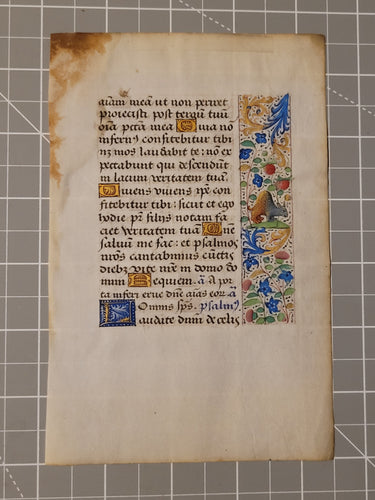 aīam meā ut non periret
proiecisti post tergū tuū
oīa pctā mea Quia nō
infern⁹ confitebitur tibi
nz mors laudabit te: nō ex
pectabunt qui descendūt
in lacum veritatem tuā
Viuens viuens ip̄e con
fitebitur tibi: sicut et ego
hodie pr̄ filijs notam fa
ciet veritatem tuā Dn̄e
saluū me fac: et psalmos
nr̄os cantabimus cūctis
diebz vite nr̄e in domo dō
mini Requiem. ā A por
ta inferi erue dn̄e aīas eoꝝ ā
Omnis sp̄s. psalm⁹
Laudate dn̄m de celis